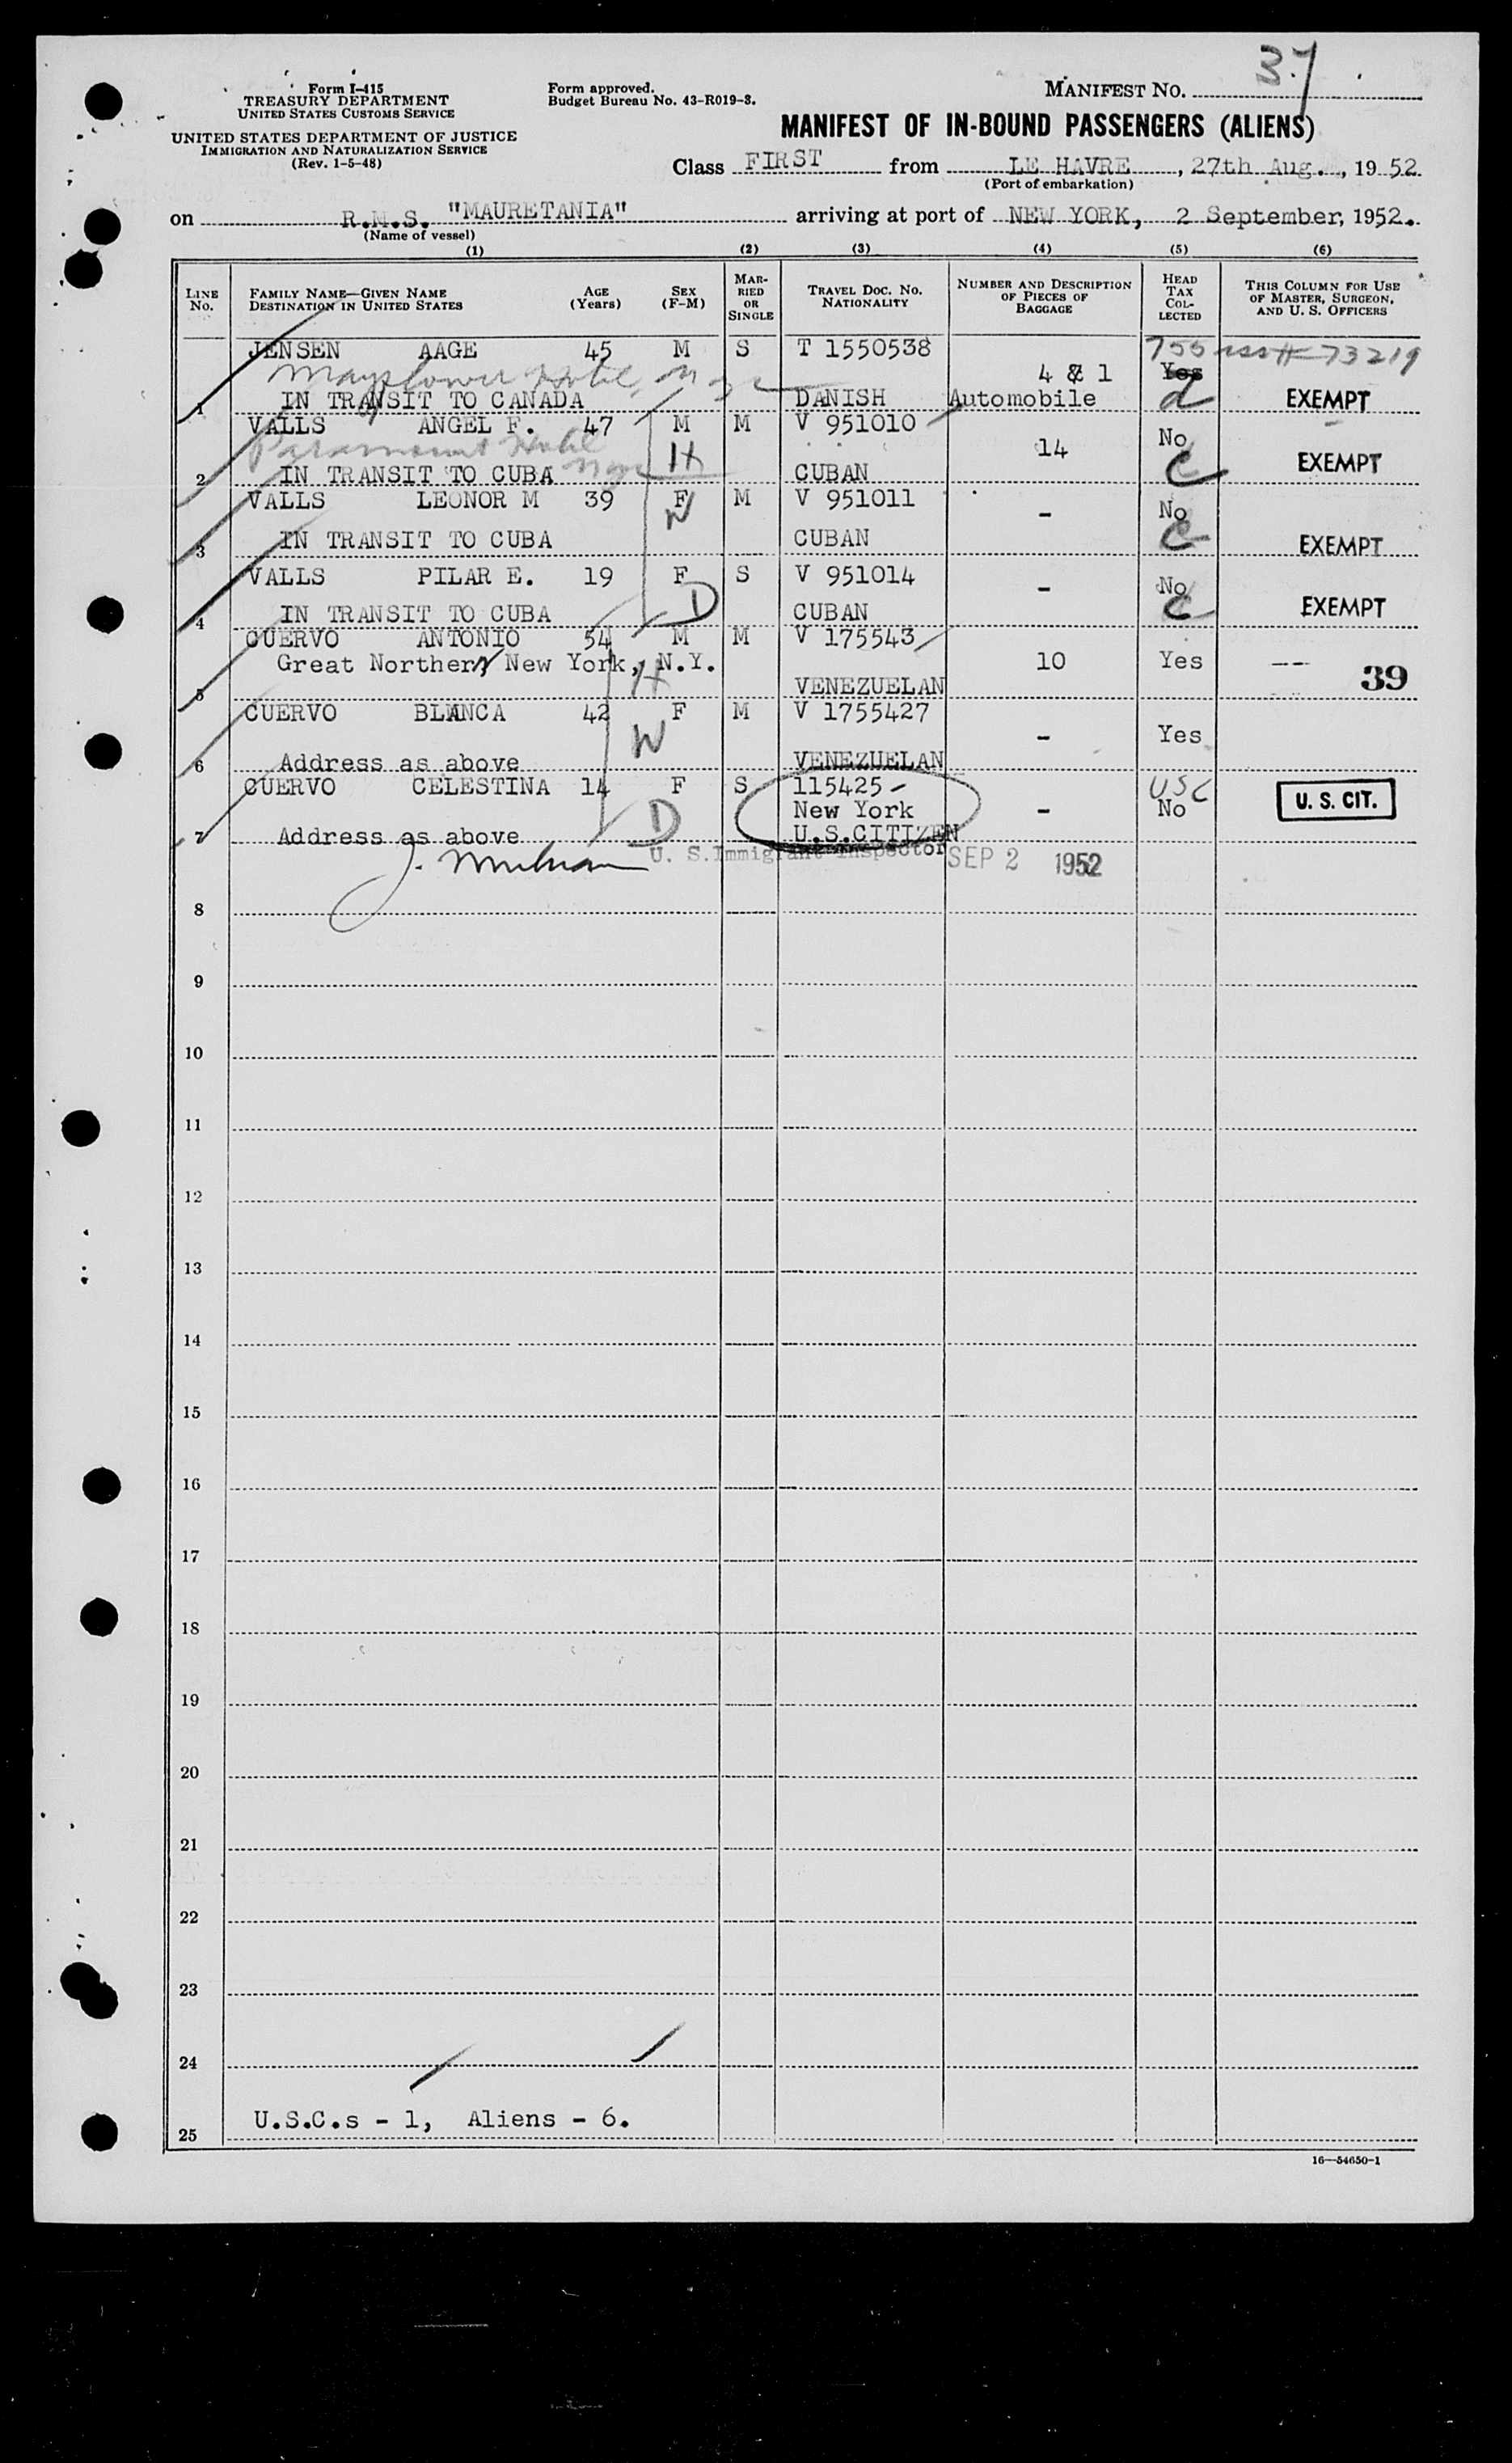 37
Form I-415
TREASURY DEPARTMENT
UNITED STATES CUSTOMS SERVICE
UNITED STATES DEPARTMENT OF JUSTICE
IMMIGRATION AND NATURALIZATION SERVICE
(Rev. 1-5-48)
Form approved.
Budget Bureau No. 43-R019-3.
MANIFEST NO.
MANIFEST OF IN-BOUND PASSENGERS (ALIENS)
Class FIRST from LE HAVRE, 27th Aug., 1952
(Port of embarkation)
on R.M.S. "MAURETANIA" arriving at port of NEW YORK, 2 September, 1952.
(Name of vessel)
(1) (2) (3) (4) (5) (6)
LINE No. FAMILY NAME—GIVEN NAME DESTINATION IN UNITED STATES AGE (Years) SEX (F-M) MARRIED OR SINGLE TRAVEL DOC. NO. NATIONALITY NUMBER AND DESCRIPTION OF PIECES OF BAGGAGE HEAD TAX COLLECTED THIS COLUMN FOR USE OF MASTER, SURGEON, AND U. S. OFFICERS
JENSEN AAGE 45 M S T 1550538 73219
Mayflower Hotel, 4 & 1 Yes
1 IN TRANSIT TO CANADA DANISH Automobile EXEMPT
VALLS ANGEL F. 47 M M V 951010
Paramount Hotel H 14 No
2 IN TRANSIT TO CUBA CUBAN C EXEMPT
VALLS LEONOR M 39 F M V 951011
W - No
3 IN TRANSIT TO CUBA CUBAN C EXEMPT
VALLS PILAR E. 19 F S V 951014
D - No
4 IN TRANSIT TO CUBA CUBAN C EXEMPT
CUERVO ANTONIO 54 M M V 175543
Great Northern New York, N.Y. 10 Yes -- 39
5 H VENEZUELAN
CUERVO BLANCA 42 F M V 1755427
W - Yes
6 Address as above VENEZUELAN
CUERVO CELESTINA 14 F S 115425- USC
D New York - No U. S. CIT.
7 Address as above U.S.CITIZEN
U. S. Immigrant Inspector SEP 2 1952
8
9
10
11
12
13
14
15
16
17
18
19
20
21
22
23
24
25 U.S.C.s - 1, Aliens - 6.
16—54650-1